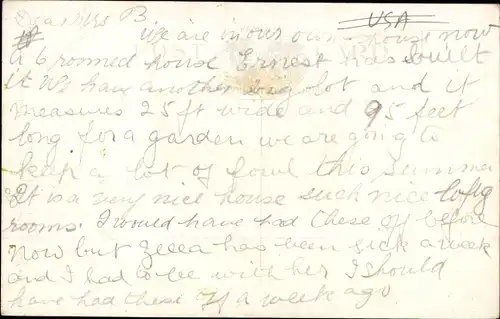 Dear Mrs B
USA
We are in our own house now
a 6 roomed house Ernest has built
it We have another big lot and it
measures 25 ft wide and 95 feet
long for a garden we are going to
keep a lot of fowl this summer
It is a very nice house such nice lofty
rooms. I would have had these off before
now but has been sick a week
and I had to be with her I should
have had these off a week ago